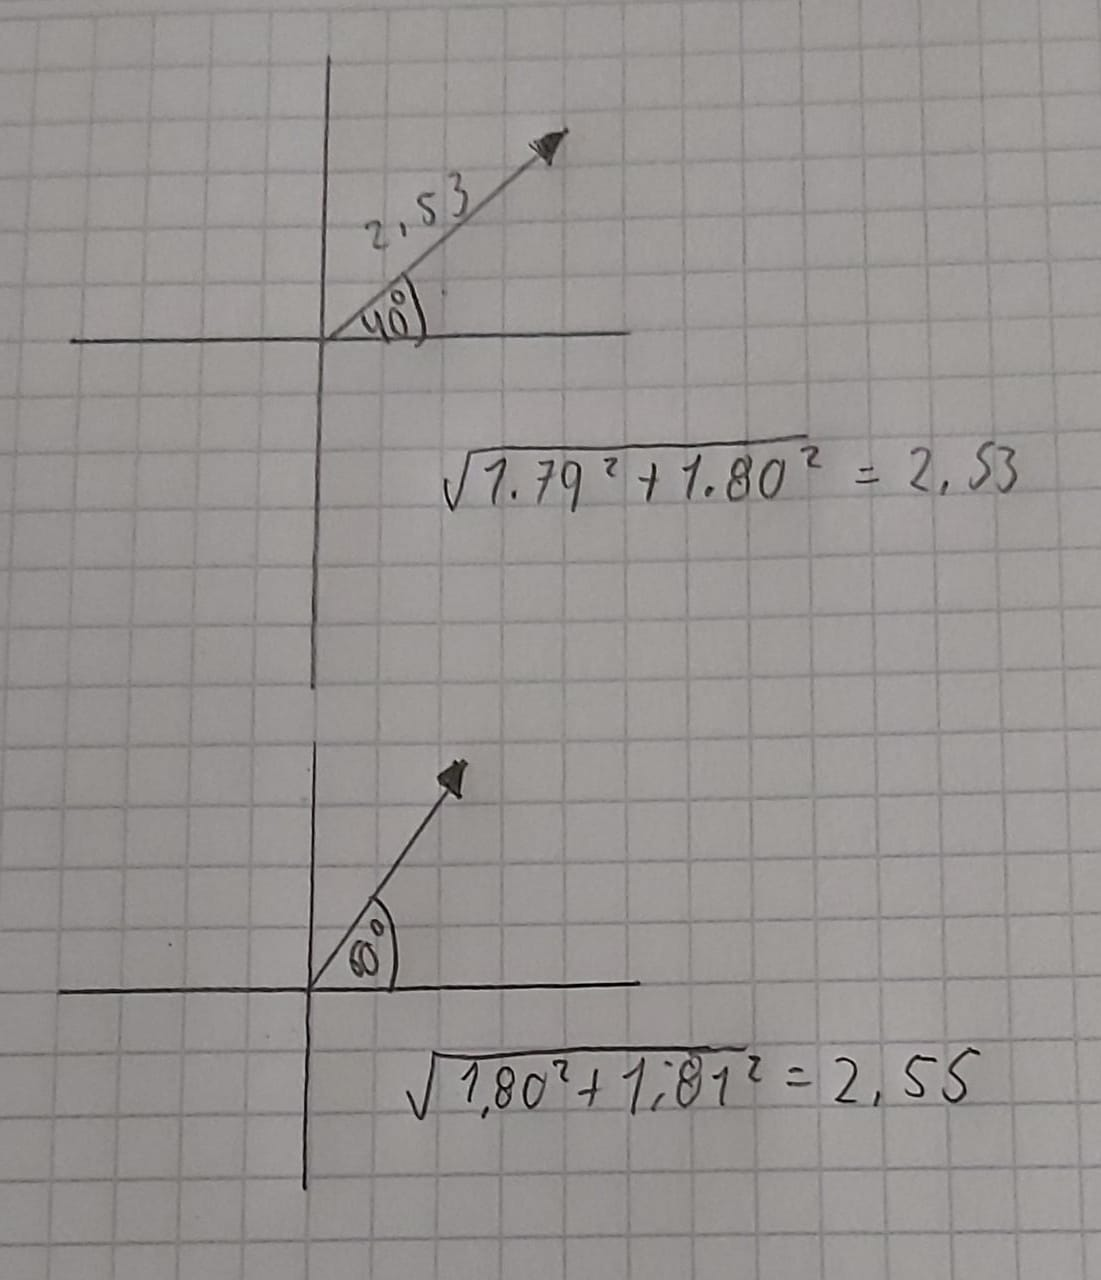 2,53
40°
√1.79² + 1.80² = 2,53
60°
√1,80² + 1,81² = 2,55